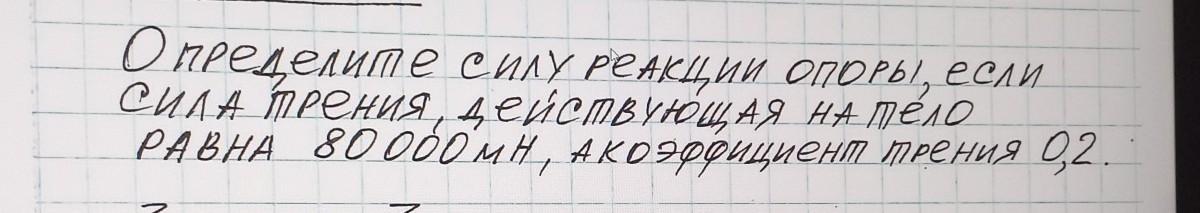 Определите силу реакции опоры, если
сила трения, действующая на тело
равна 80000мН, а коэффициент трения 0,2.